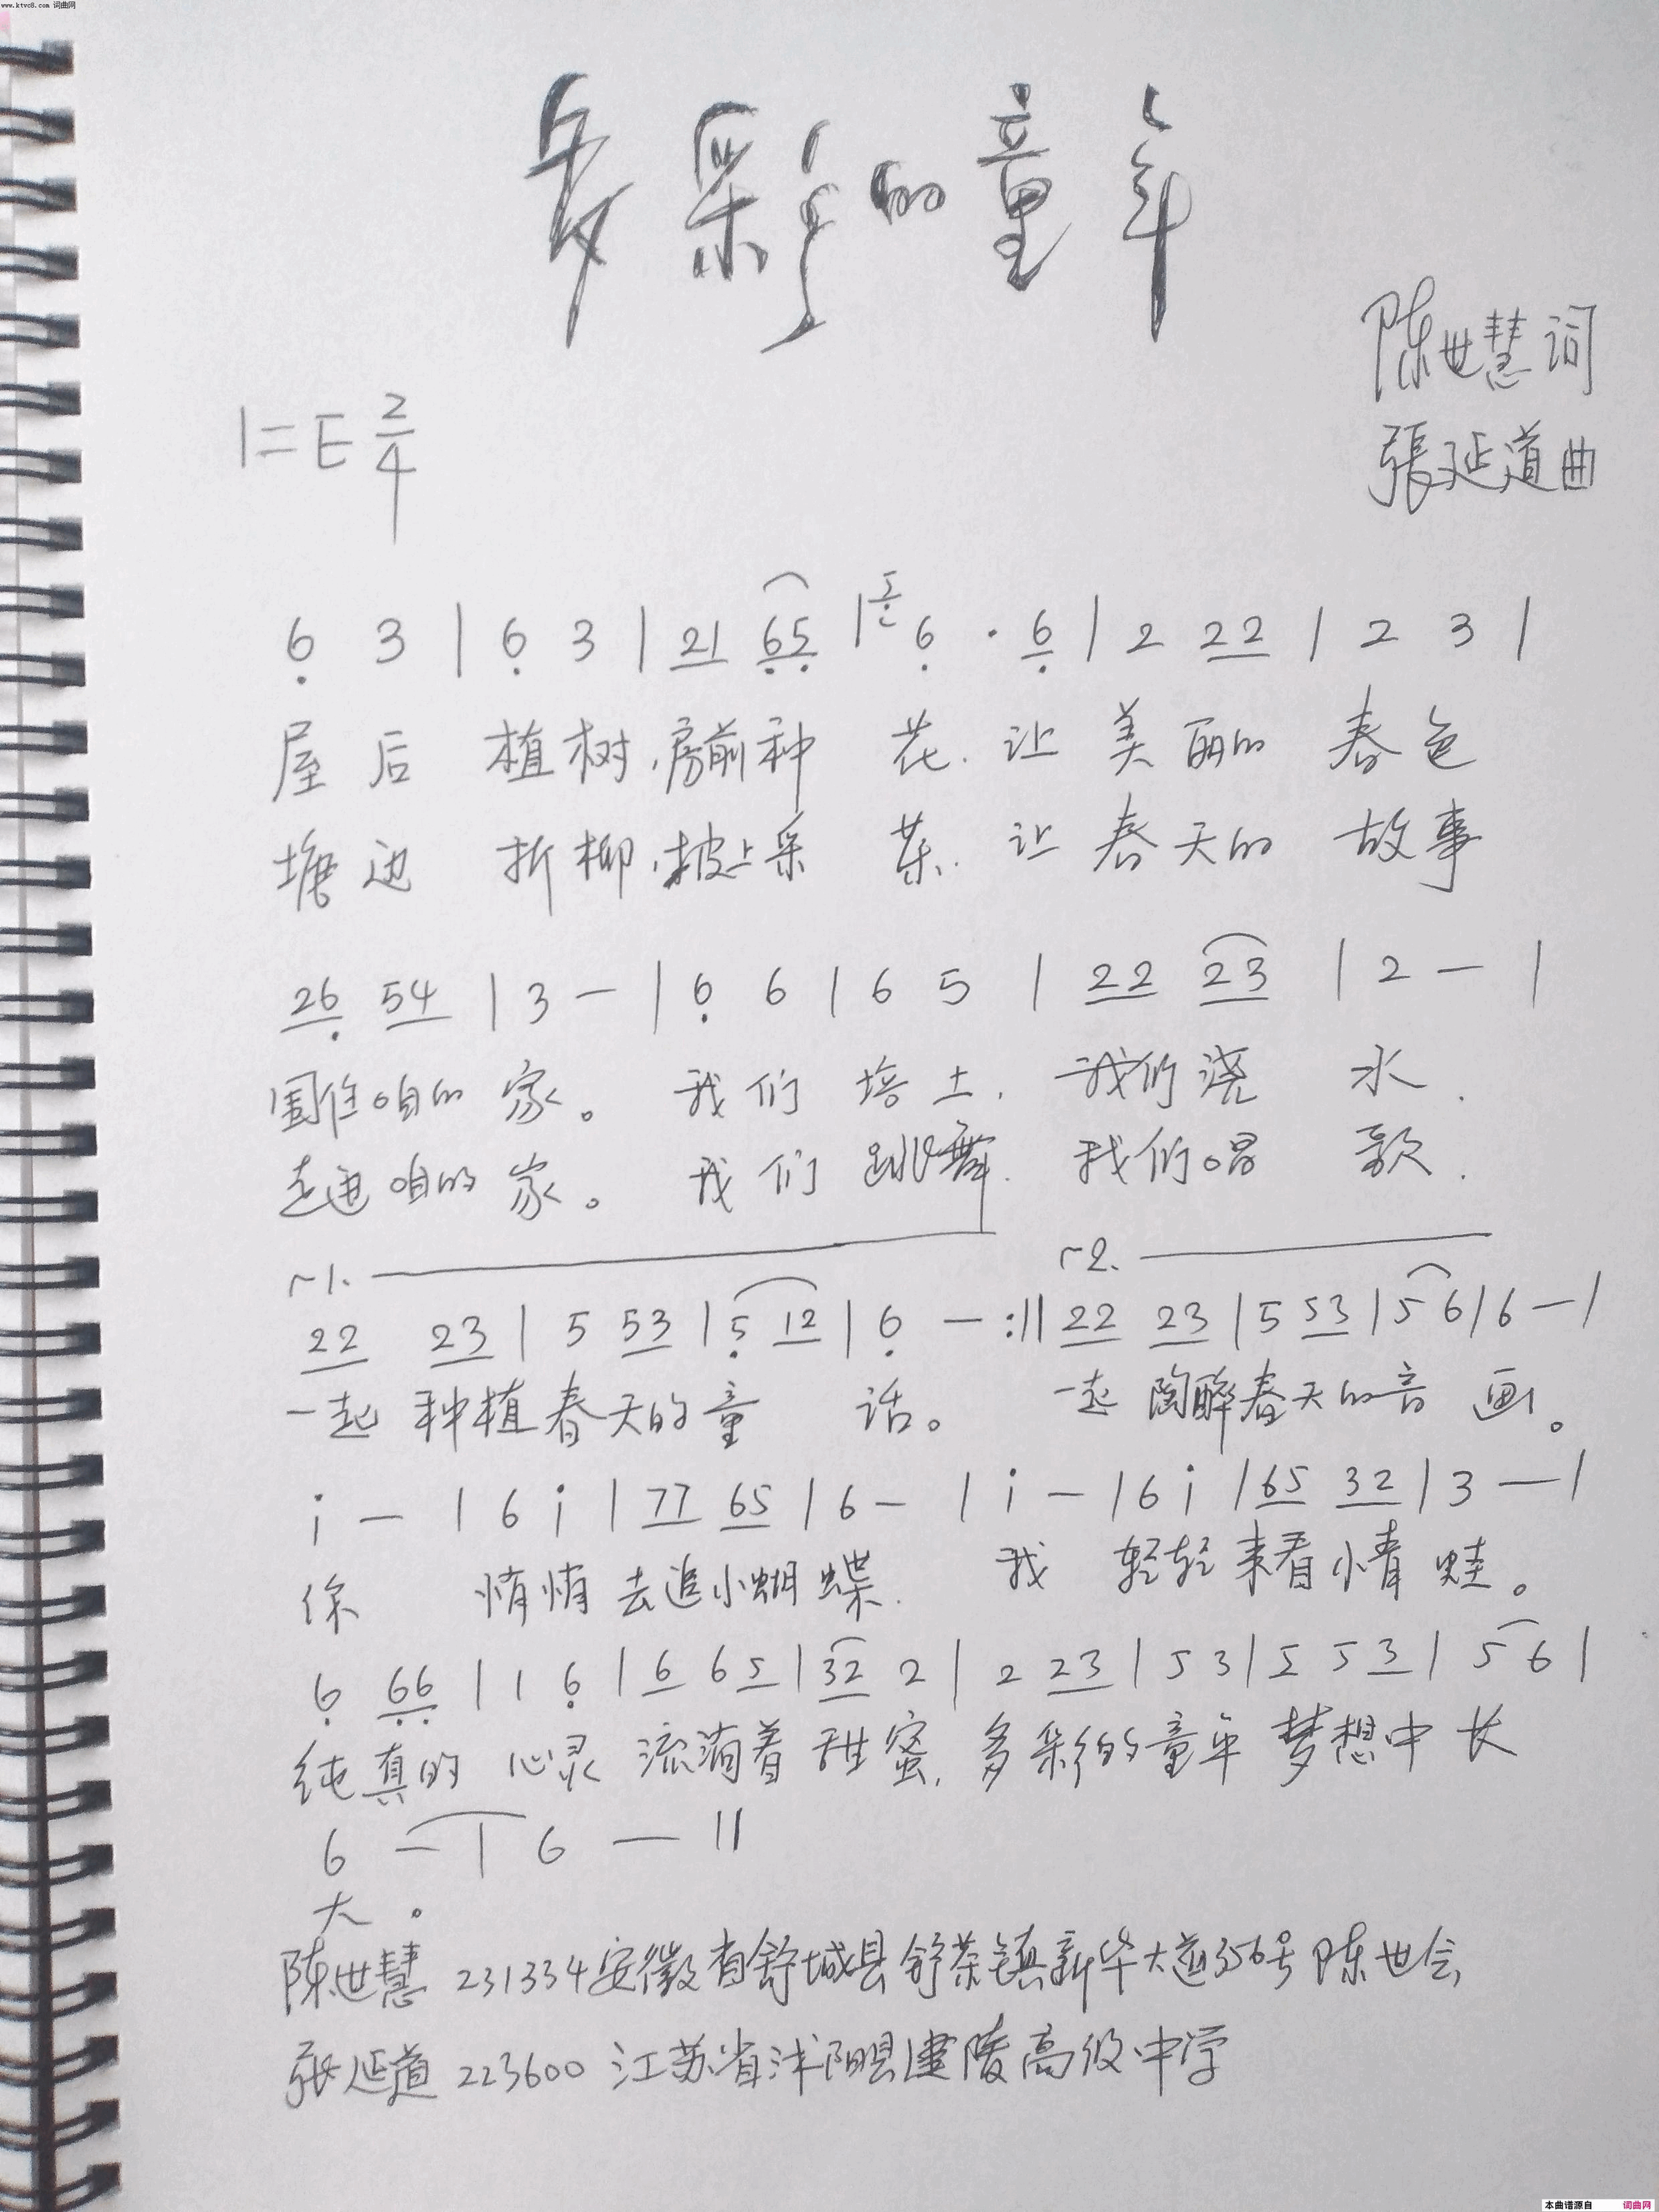 www.ktvc8.com 词曲网
多彩的童年
陈世慧词
1=E 2/4
張延道曲
6 3 | 6 3 | 21 65 | 6 · 6 | 2 22 | 2 3 |
屋后 植树,房前种 花.让 美丽的 春色
塘边 折柳,坡上采 茶.让 春天的 故事
26 54 | 3 — | 6 6 | 6 5 | 22 23 | 2 — |
围住咱的 家。 我们 培土. 我们浇 水.
走进咱的 家。 我们 跳舞. 我们唱 歌.
1. 2.
22 23 | 5 53 | 5 12 | 6 — :|| 22 23 | 5 53 | 5 6 | 6 — |
一起 种植春天的童 话。 一起 陶醉春天的音 画。
i — | 6 i | 77 65 | 6 — | i — | 6 i | 65 32 | 3 — |
你 悄悄去追小蝴蝶. 我 轻轻来看小青蛙。
6 66 | 1 6 | 6 6 5 | 32 2 | 2 23 | 5 3 | 5 5 3 | 5 6 |
纯真的 心灵 流淌着 甜蜜,多彩的童年 梦想中 长
6 — | 6 — ||
大。
陈世慧 231334安徽省舒城县舒茶镇新华大道356号陈世会
張延道 223600 江苏省沭阳县建陵高级中学
本曲谱源自 词曲网